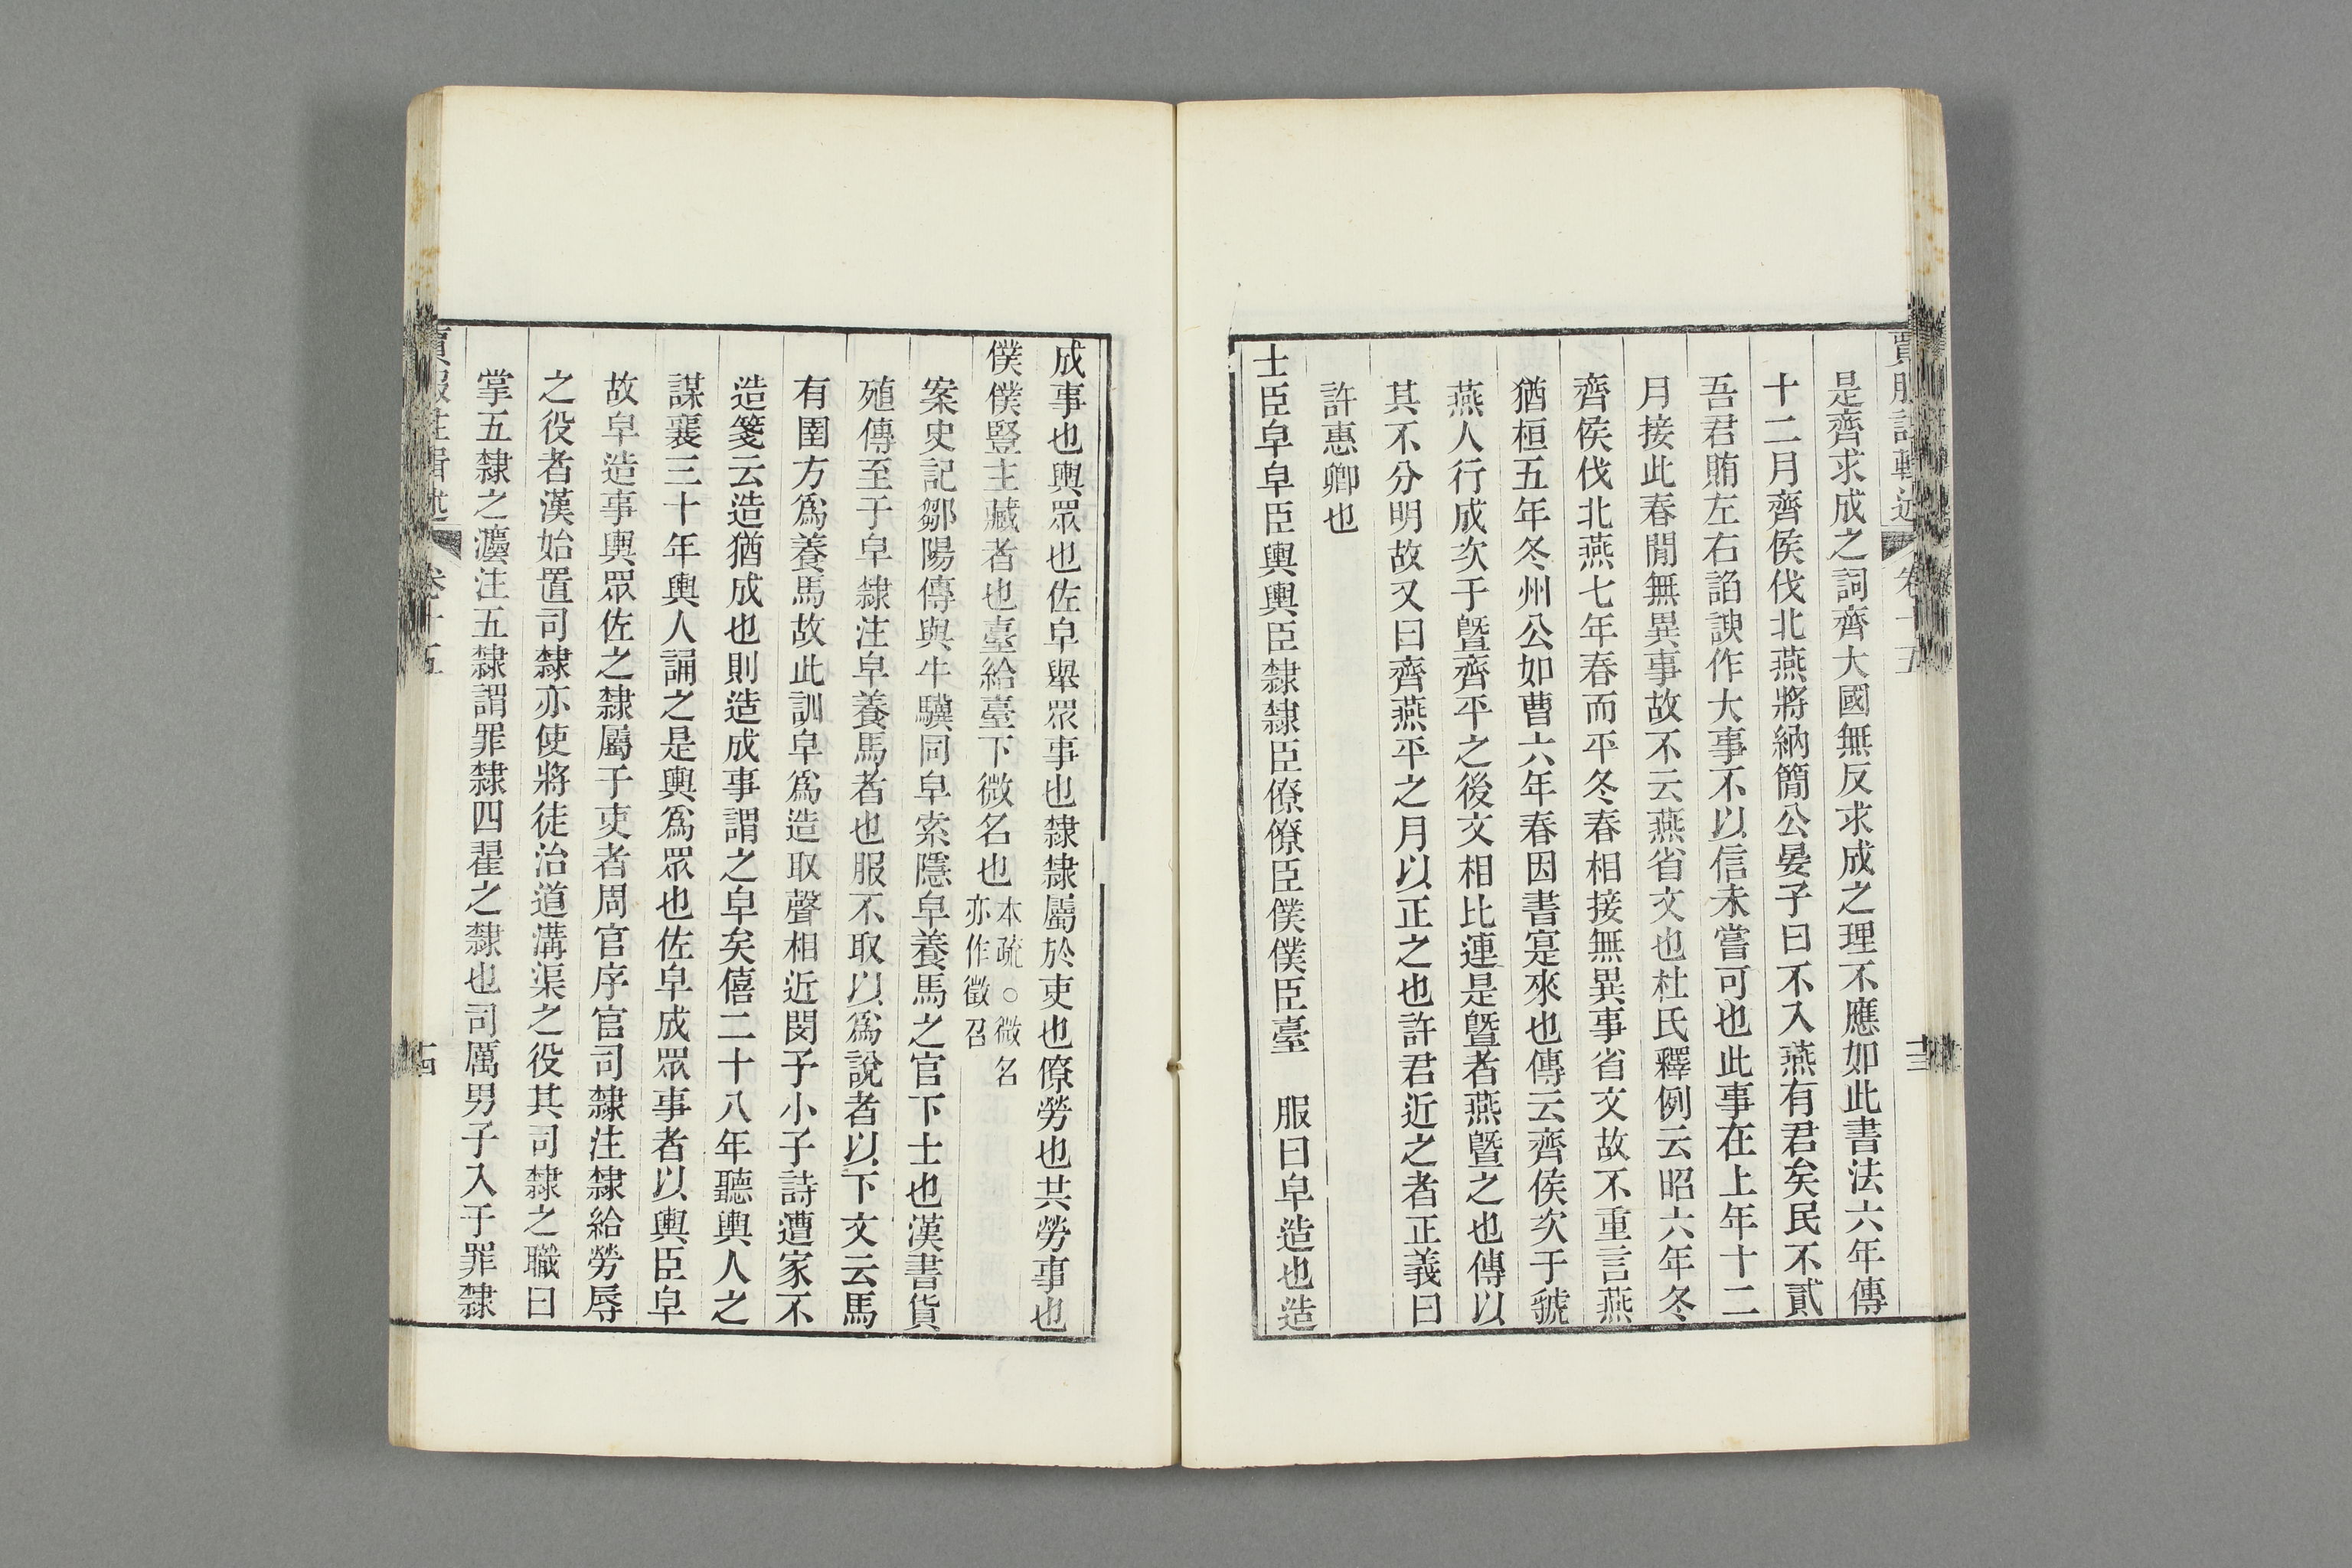 是齊求成之詞齊大國無反求成之理不應如此書法六年傳
十二月齊侯伐北燕將納簡公晏子曰不入燕有君矣民不貳
吾君賄左右諂諛作大事不以信未嘗可也此事在上年十二
月接此春閒無異事故不云燕省文也杜氏釋例云昭六年冬
齊侯伐北燕七年春而平冬春相接無異事省文故不重言燕
猶桓五年冬州公如曹六年春因書寔來也傳云齊侯次于虢
燕人行成次于曁齊平之後文相比連是曁者燕曁之也傳以
其不分明故又曰齊燕平之月以正之也許君近之者正義曰
許惠卿也
士臣皁皁臣輿輿臣隸隸臣僚僚臣僕僕臣臺 服曰皁造也造
賈服注輯述 卷十五 十三
成事也輿眾也佐皁舉眾事也隸隸屬於吏也僚勞也共勞事也
僕僕豎主藏者也臺給臺下微名也
本疏○微名
亦作徵召
案史記鄒陽傳與牛驥同皁索隱皁養馬之官下士也漢書貨
殖傳至于皁隸注皁養馬者也服不取以爲說者以下文云馬
有圉方爲養馬故此訓皁爲造取聲相近閔予小子詩遭家不
造箋云造猶成也則造成事謂之皁矣僖二十八年聽輿人之
謀襄三十年輿人誦之是輿爲眾也佐皁成眾事者以輿臣皁
故皁造事輿眾佐之隸屬于吏者周官序官司隸注隸給勞辱
之役者漢始置司隸亦使將徒治道溝渠之役其司隸之職曰
掌五隸之灋注五隸謂罪隸四翟之隸也司厲男子入于罪隸
賈服注輯述 卷十五 十四